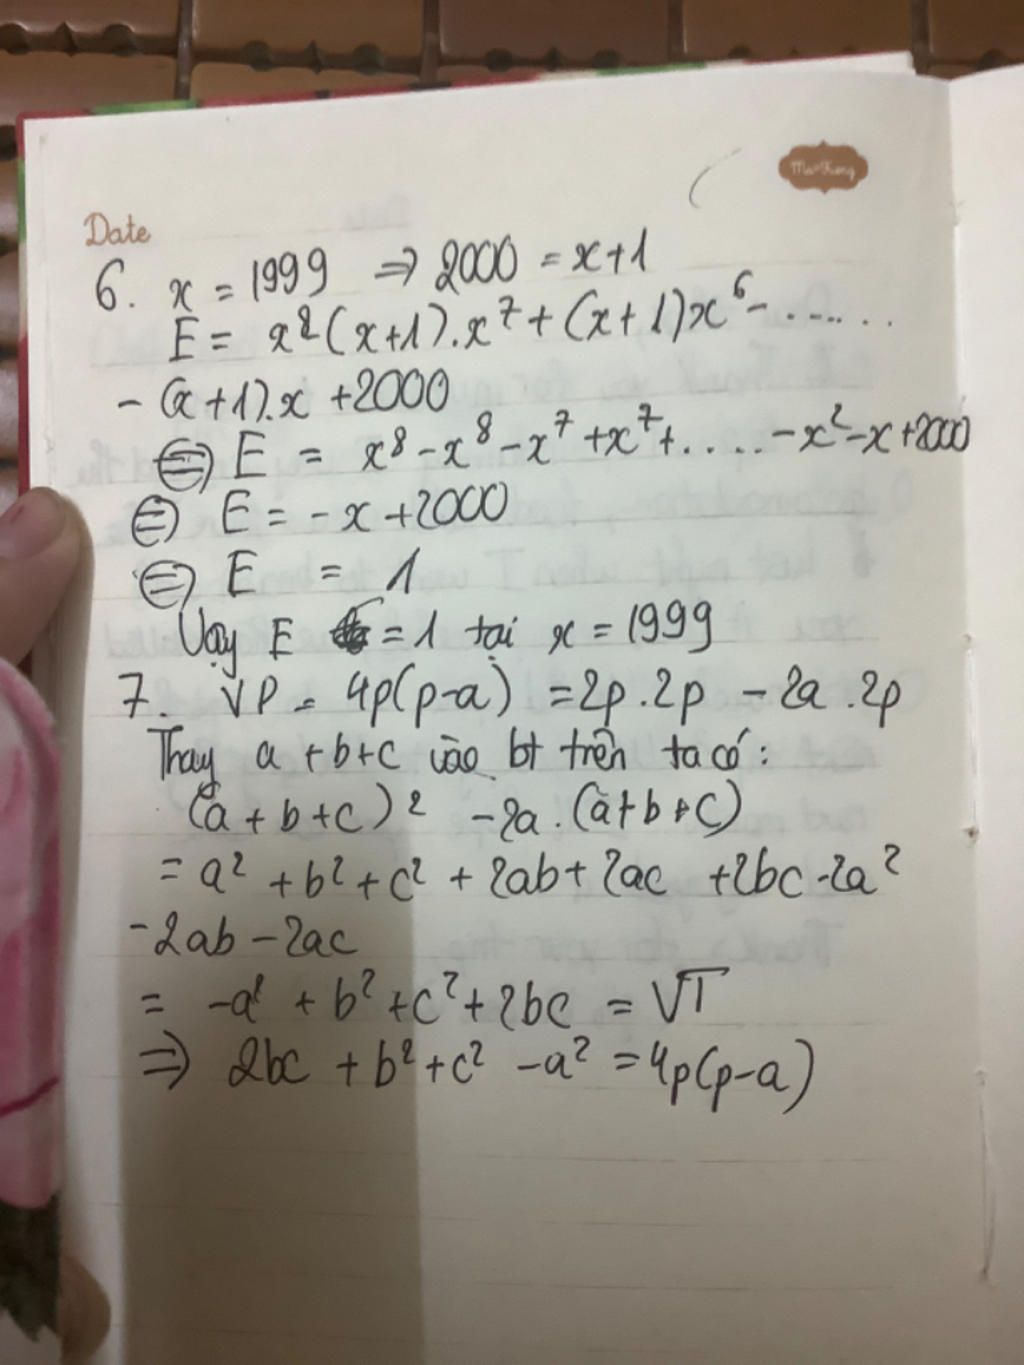 Date
6. x = 1999 ⇒ 2000 = x+1
E = x⁸(x+1).x⁷ + (x+1)x⁶ - .......
- (x+1).x +2000
⇔ E = x⁸ - x⁸ - x⁷ + x⁷ + ..... - x² - x + 2000
⇔ E = - x + 2000
⇔ E = 1
Vậy E = 1 tại x = 1999
7. VP = 4p(p-a) = 2p.2p - 2a.2p
Thay a + b + c vào bt trên ta có:
(a + b + c)² - 2a.(a + b + c)
= a² + b² + c² + 2ab + 2ac + 2bc - 2a²
- 2ab - 2ac
= -a² + b² + c² + 2bc = VT
⇒ 2bc + b² + c² - a² = 4p(p-a)